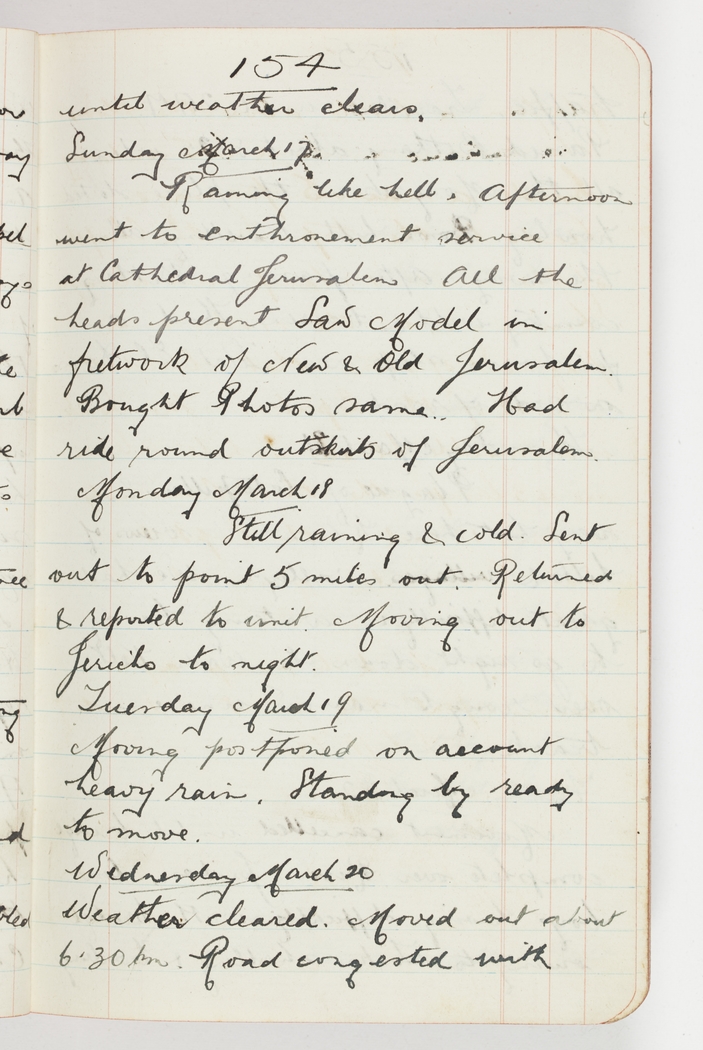 154
until weather clears.
Sunday March 17.
Raining like hell. Afternoon
went to enthronement service
at Cathedral Jerusalem All the
heads present Saw Model in
fretwork of New & Old Jerusalem.
Bought Photos same. Had
ride round outskirts of Jerusalem.
Monday March 18
Still raining & cold. Sent
out to point 5 miles out. Returned
& reported to unit. Moving out to
Jericho to night.
Tuesday March 19
Moving postponed on account
heavy rain. Standing by ready
to move.
Wednesday March 20
Weather cleared. Moved out about
6.30 pm. Road congested with